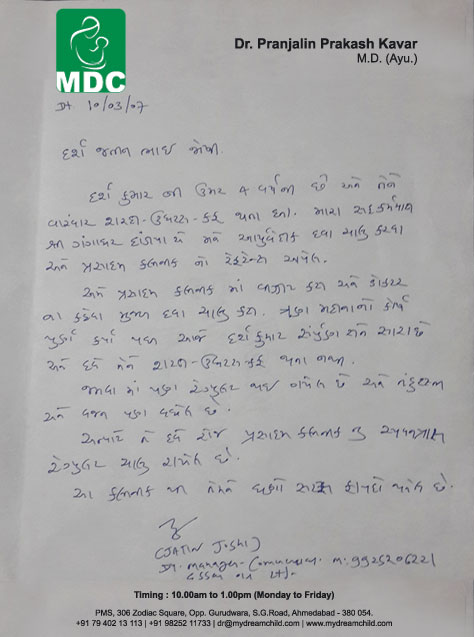 MDC
Dr. Pranjalin Prakash Kavar
M.D. (Ayu.)
Dt 10/03/07
દર્શ જતીન ભાઈ જોષી
દર્શ કુમાર ની ઉંમર 4 વર્ષની છે અને તેને
વારંવાર શરદી-ઉધરસ-કફ થતા હતા. મારા સહકર્મચારી
શ્રી ગંગાધર મને આયુર્વેદીક દવા ચાલુ કરવા
અને પ્રસાદમ કલીનીક નો રેફરન્સ આપેલ.
અમે પ્રસાદમ કલીનીક માં કરી અને ડોકટર
ના કહેવા મુજબ દવા ચાલુ કરી. મહીનાનો કોર્ષ
પુર્ણ કર્યા પછી આજે દર્શકુમાર સંપુર્ણ રીતે સારા છે
અને હવે તેને શરદી-ઉધરસ-કફ થતા નથી.
જમવા માં પણ રેગ્યુલર થઈ ગયેલ છે અને
અને વજન પણ વધેલ છે.
અત્યારે તે હવે રોજ પ્રસાદમ કલીનીક નુ ચ્યવનપ્રાસ
રેગ્યુલર ચાલુ રાખેલ છે.
આ કલીનીક થી તેમને ઘણો સરસ ફાયદો થયેલ છે.
(JATIN JOSHI)
Dy. Manager- m: 9925206221
Timing : 10.00am to 1.00pm (Monday to Friday)
PMS, 306 Zodiac Square, Opp. Gurudwara, S.G.Road, Ahmedabad - 380 054.
+91 79 402 13 113 | +91 98252 11733 | dr@mydreamchild.com | www.mydreamchild.com